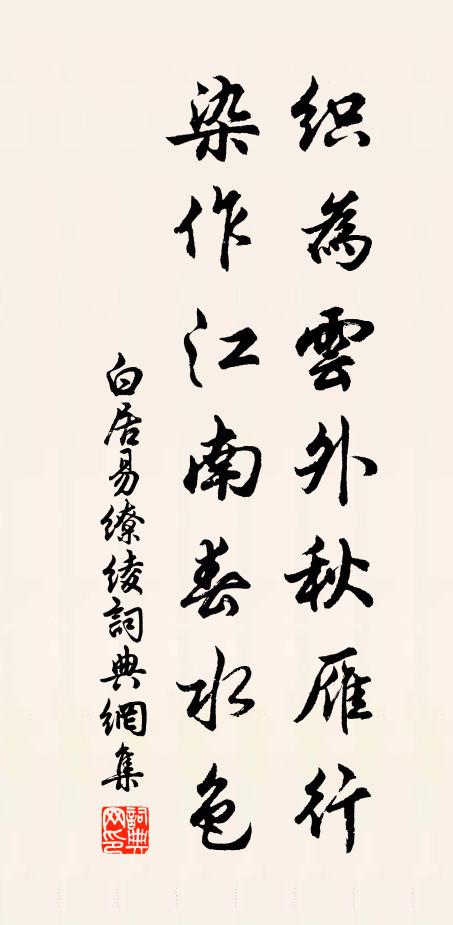 織為雲外秋雁行
染作江南春水色
白居易繚綾詞典網集
詞典網印